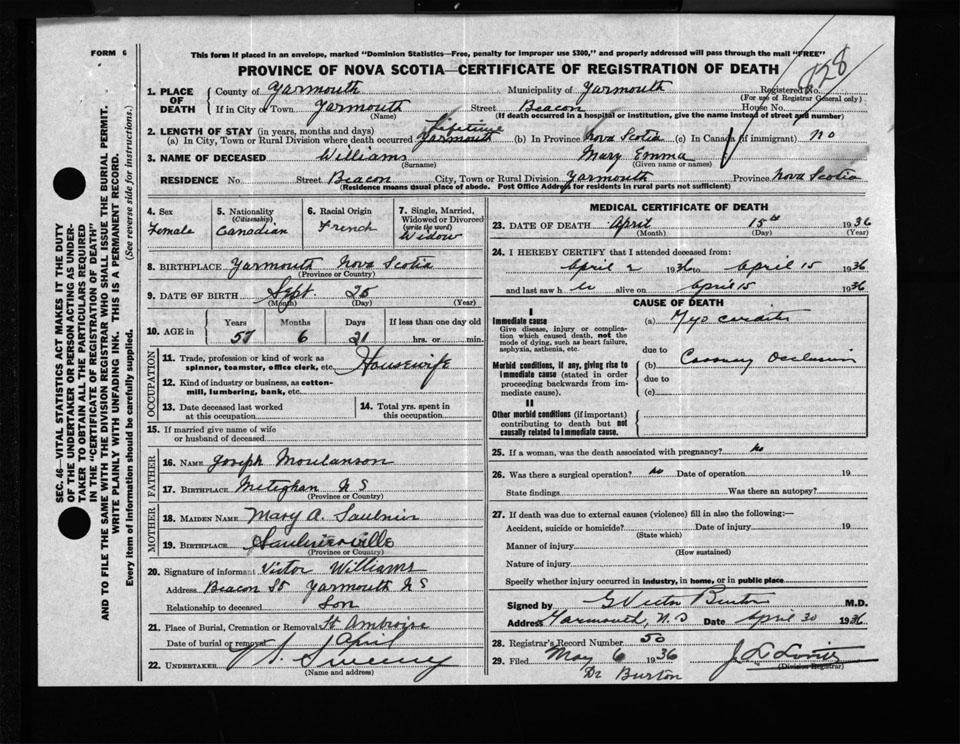 FORM 6
This form if placed in an envelope, marked "Dominion Statistics—Free, penalty for improper use $300," and properly addressed will pass through the mail "FREE"
PROVINCE OF NOVA SCOTIA—CERTIFICATE OF REGISTRATION OF DEATH
128
SEC. 46—VITAL STATISTICS ACT MAKES IT THE DUTY
OF THE UNDERTAKER OR PERSON ACTING AS UNDER-
TAKER TO OBTAIN ALL THE PARTICULARS REQUIRED
IN THE "CERTIFICATE OF REGISTRATION OF DEATH"
AND TO FILE THE SAME WITH THE DIVISION REGISTRAR WHO SHALL ISSUE THE BURIAL PERMIT.
WRITE PLAINLY WITH UNFADING INK. THIS IS A PERMANENT RECORD.
Every item of information should be carefully supplied. (See reverse side for instructions.)
1. PLACE OF DEATH County of Yarmouth Municipality of Yarmouth Registered No.
(For use of Registrar General only)
If in City or Town Yarmouth Street Beacon House No.
(Name) (If death occurred in a hospital or institution, give the name instead of street and number)
2. LENGTH OF STAY (in years, months and days) Lifetime
(a) In City, Town or Rural Division where death occurred Yarmouth (b) In Province Nova Scotia (c) In Canada (if immigrant) no
3. NAME OF DECEASED Williams Mary Emma
(Surname) (Given name or names)
RESIDENCE No. Street Beacon City, Town or Rural Division Yarmouth Province Nova Scotia
(Residence means usual place of abode. Post Office Address for residents in rural parts not sufficient)
4. Sex Female
5. Nationality (Citizenship) Canadian
6. Racial Origin French
7. Single, Married, Widowed or Divorced (write the word) Widow
8. BIRTHPLACE Yarmouth Nova Scotia
(Province or Country)
9. DATE OF BIRTH Sept. 25
(Month) (Day) (Year)
10. AGE in Years Months Days If less than one day old
57 6 21 hrs. or min.
OCCUPATION
11. Trade, profession or kind of work as spinner, teamster, office clerk, etc. Housewife
12. Kind of industry or business, as cotton-mill, lumbering, bank, etc.
13. Date deceased last worked at this occupation
14. Total yrs. spent in this occupation
15. If married give name of wife or husband of deceased
FATHER
16. NAME Joseph Moulanson
17. BIRTHPLACE Meteghan N S
(Province or Country)
MOTHER
18. MAIDEN NAME Mary A. Saulnier
19. BIRTHPLACE Saulnierville
(Province or Country)
20. Signature of informant Victor Williams
Address Beacon St Yarmouth N S
Relationship to deceased Son
21. Place of Burial, Cremation or Removal St Ambroise
Date of burial or removal April
22. UNDERTAKER Sweeny
(Name and address)
MEDICAL CERTIFICATE OF DEATH
23. DATE OF DEATH April 15th 1936
(Month) (Day) (Year)
24. I HEREBY CERTIFY that I attended deceased from:
April 2 1936 to April 15 1936
and last saw h er alive on April 15 1936
CAUSE OF DEATH
I
Immediate cause
Give disease, injury or complication which caused death, not the mode of dying, such as heart failure, asphyxia, asthenia, etc.
(a) Myocarditis
due to
Morbid conditions, if any, giving rise to immediate cause (stated in order proceeding backwards from immediate cause).
(b) Coronary Occlusion
due to
(c)
II
Other morbid conditions (if important) contributing to death but not causally related to immediate cause.
25. If a woman, was the death associated with pregnancy? No
26. Was there a surgical operation? No Date of operation 19
State findings Was there an autopsy?
27. If death was due to external causes (violence) fill in also the following:—
Accident, suicide or homicide? Date of injury 19
(State which)
Manner of injury
(How sustained)
Nature of injury
Specify whether injury occurred in industry, in home, or in public place
Signed by G Victor Burton M.D.
Address Yarmouth, N.S Date April 30 1936
28. Registrar's Record Number 50
29. Filed May 6 1936
(Division Registrar)
Dr Burton